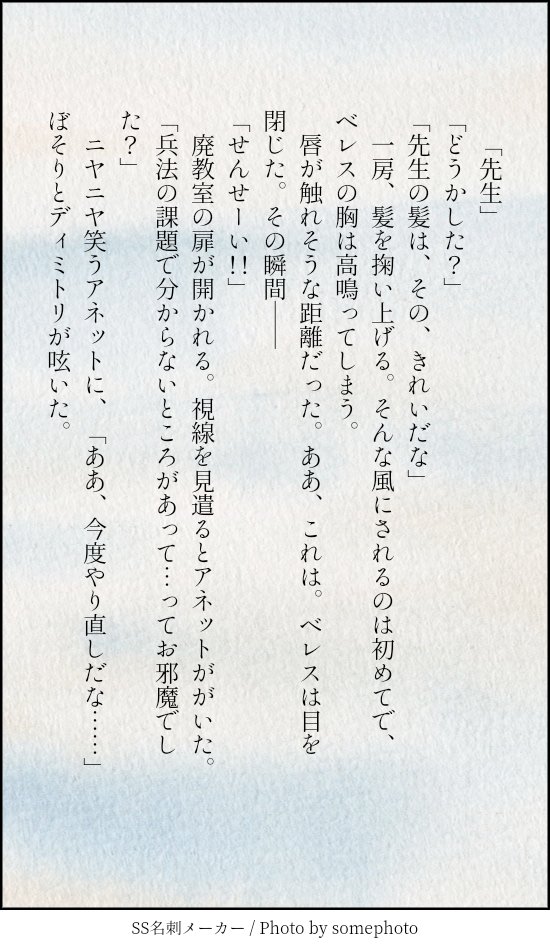 「先生」
「どうかした?」
「先生の髪は、その、きれいだな」
一房、髪を掬い上げる。そんな風にされるのは初めてで、
ベレスの胸は高鳴ってしまう。
唇が触れそうな距離だった。ああ、これは。ベレスは目を
閉じた。その瞬間――
「せんせーい!!」
廃教室の扉が開かれる。視線を見遣るとアネットががいた。
「兵法の課題で分からないところがあって…ってお邪魔でし
た?」
ニヤニヤ笑うアネットに、「ああ、今度やり直しだな……」
ぼそりとディミトリが呟いた。
SS名刺メーカー / Photo by somephoto